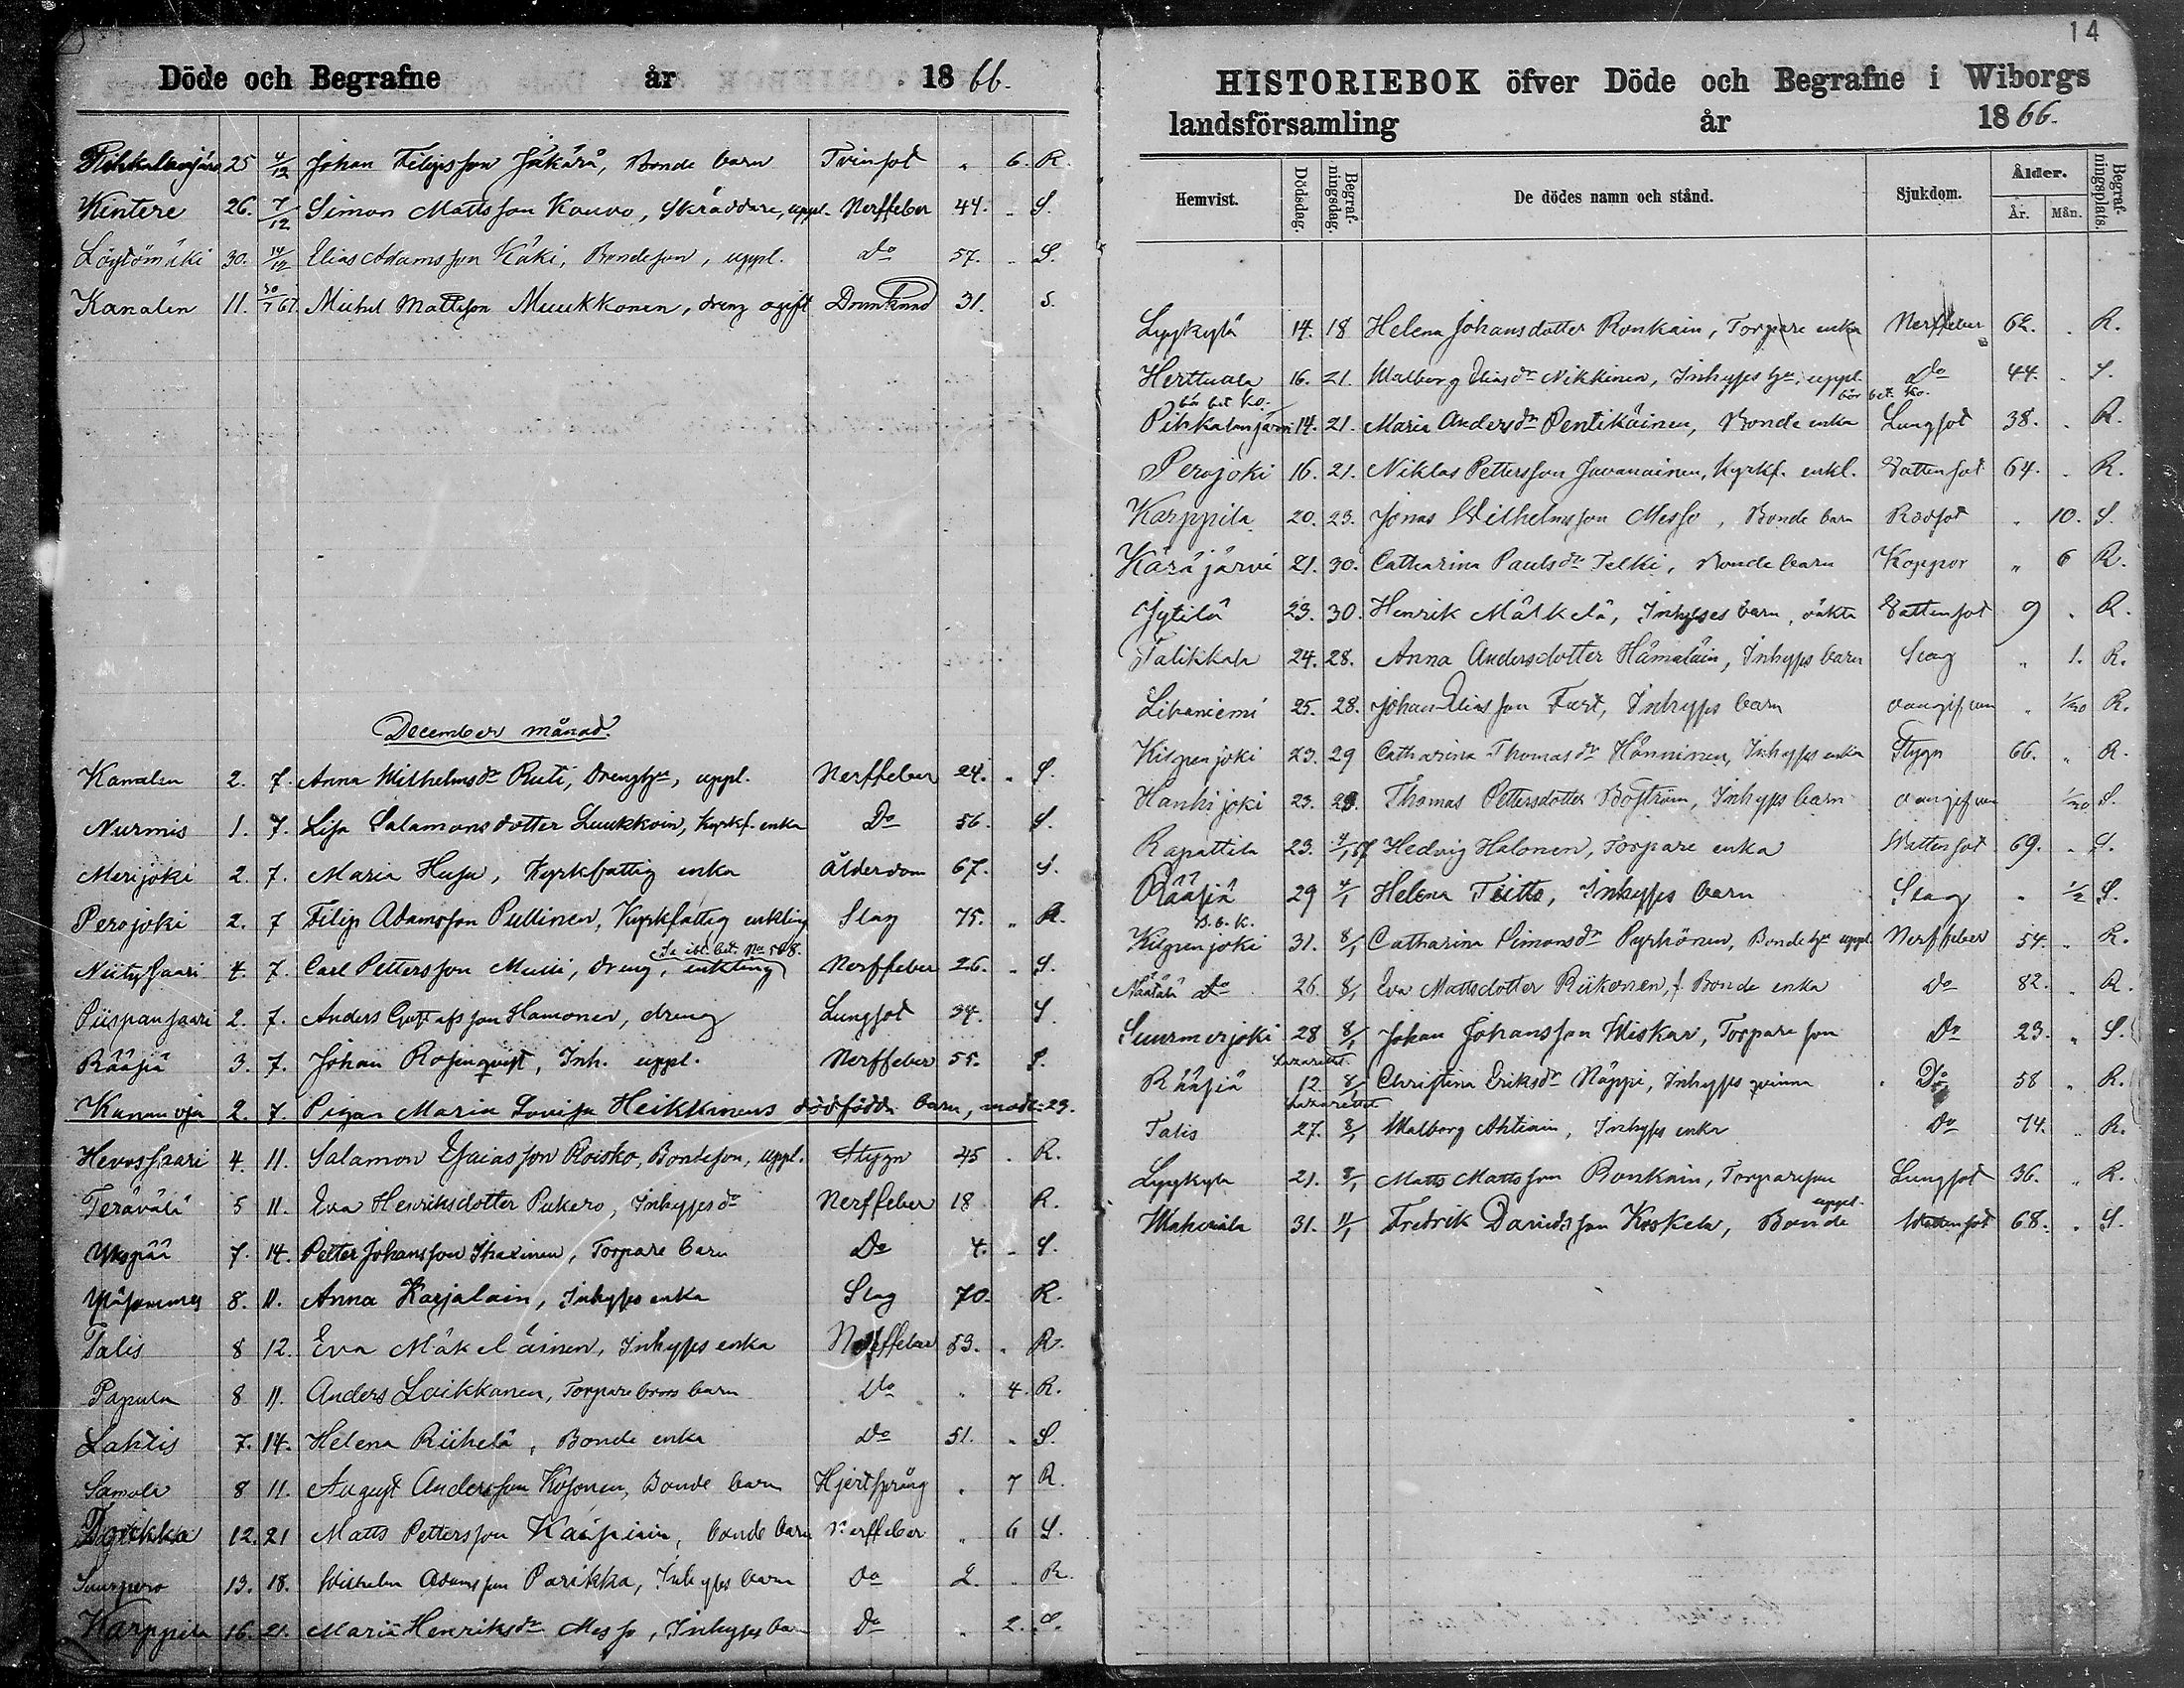 Döde och Begrafne år 1866.
Pihkalanjärvi 25 4/12 Johan Filipsson Jäkärä, Bonde barn Tvinsot „ 6. R.
Kintere 26. 7/12 Simon Mattsson Kouvo, Skräddare, uppl. Nerffeber 44. „ S.
Löytömäki 30. 14/12 Elias Adamsson Käki, Bondeson, uppl. do 57. „ S.
Kanalen 11. 30/7 67. Michel Mattsson Muukkonen, dreng ogift 31. S.
December månad.
Kanalen 2. 7. Anna Wilhelmsdr Ruti, drenghu, uppl. Nerffeber 24. „ S.
Nurmis 1. 7. Lisa Salamonsdotter Luukkoin, Kyrkf. enka Do 56. S.
Merijoki 2. 7. Maria Husu, Kyrkfattig enka Ålderdom 67. S.
Perojoki 2. 7 Filip Adamsson Pullinen, Kyrkfattig enkling Slag 75. „ R.
Se ibl. bet. No 508.
Niitysaari 4. 7. Carl Pettersson Muui, dreng, enkling Nerffeber 26. „ S.
Piispansaari 2. 7. Anders Gustafsson Hamonen, dreng Lungsot 34. S
Rääsiä 3. 7. Johan Rosenqvist, Inh. uppl. Nerffeber 55. S.
2. 7. Pigan Maria Lovisa Heikkinens dödfödda barn, mod: 29.
Hevossaari 4. 11. Salamon Esaiasson Roisko, Bondeson, uppl. Stygn 45 „ R.
Terävälä 5 11. Eva Henriksdotter Pukero, Inhysesdr Nerffeber 18 R.
Yxpää 7. 14. Petter Johansson Ikaxinen, Torpare barn Do 4. „ S.
Yläsommes 8. 11. Anna Karjalain, Inhyses enka Slag 70. R.
Talis 8 12. Eva Mäkeläinen, Inhyses enka Nerffeber 53. „ R.
Papula 8 11. Anders Laikkanen, Torpare brors barn do „ 4. R.
Lahtis 7. 14. Helena Riihelä, Bonde enka do 51. „ S.
Samola 8 11. August Andersson Kosonen, Bonde barn Hjertsprång „ 7 R.
12. 21 Matts Pettersson Kaipiain, bonde barn Nerffeber „ 6 S.
Suurpero 13. 18. Wilhelm Adamsson Parikka, Inhyses barn do 2. „ R.
Karppila 16. 21. Maria Henriksdr Messo, Inhyses barn Do „ 2. S.
14
HISTORIEBOK öfver Döde och Begrafne i Wiborgs
landsförsamling år 1866.
Hemvist. Dödsdag. Begrafningsdag. De dödes namn och stånd. Sjukdom. Ålder. År. Mån. Begrafningsplats.
Lyykylä 14. 18 Helena Johansdotter Ronkain, Torpare enka Nerffeber 62. „ R.
Herttuala 16. 21. Walborg Eliasdr Nikkinen, Inhyses hu, uppl. do 44. „ S.
bör bet. Ko. bör bet. Ko.
Pihkalanjärvi 14. 21. Maria Andersdr Pentikäinen, Bonde enka Lungsot 38. „ R.
Perojoki 16. 21. Niklas Pettersson Javanainen, Kyrkf. enkl. Vattensot 64. „ R.
Karppila 20. 23. Jonas Wilhelmsson Messo, Bonde barn Rödsot „ 10. S.
Käräjärvi 21. 30. Catharina Paulsdr Telki, Bonde barn Koppor „ 6 R.
Jytilä 23. 30. Henrik Mälkelä, Inhyses barn, oäkta Vattensot 9 „ R.
Talikkala 24. 28. Anna Andersdotter Hämäläin, Inhyses barn Slag „ 1. R.
Lihaniemi 25. 28. Johan Eliasson Furt, Inhyses barn oangifven „ 1/30 R.
Kilpenjoki 23. 29 Catharina Thomasdr Hänninen, Inhyses enka Stygn 66. „ R.
Hanhijoki 23. 29. Thomas Pettersdotter Boström, Inhyses barn oangifven 1/30 S.
Rapattila 23. 4/1 67 Hedvig Halonen, Torpare enka Wattensot 69. „ S.
Rääsiä 29 4/1 Helena Teitto, Inhyses barn Slag „ 1/2 S.
B. o. K.
Kilpenjoki 31. 8/1 Catharina Simonsdr Pyrhönen, Bonde hu uppl. Nerffeber 54. „ R.
Näätälä do 26. 8/1 Eva Mattsdotter Riikonen, f. Bonde enka do 82. „ R.
Suurmerjoki 28 8/1 Johan Johansson Wiskar, Torpare son do 23. „ S.
Lazarettet
Rääsiä 12 8/1 Christina Eriksdr Näppi, Inhyses qvinna Do 58 „ R.
Lazarettet
Talis 27. 8/1 Walborg Ahtiain, Inhyses enka do 74. „ R.
Lyykylä 21. 8/1 Matts Mattsson Ronkain, Torpareson Lungsot 36. „ R.
uppl.
Wahviala 31. 11/1 Fredrik Davidsson Koskela, Bonde Wattensot 68. „ S.